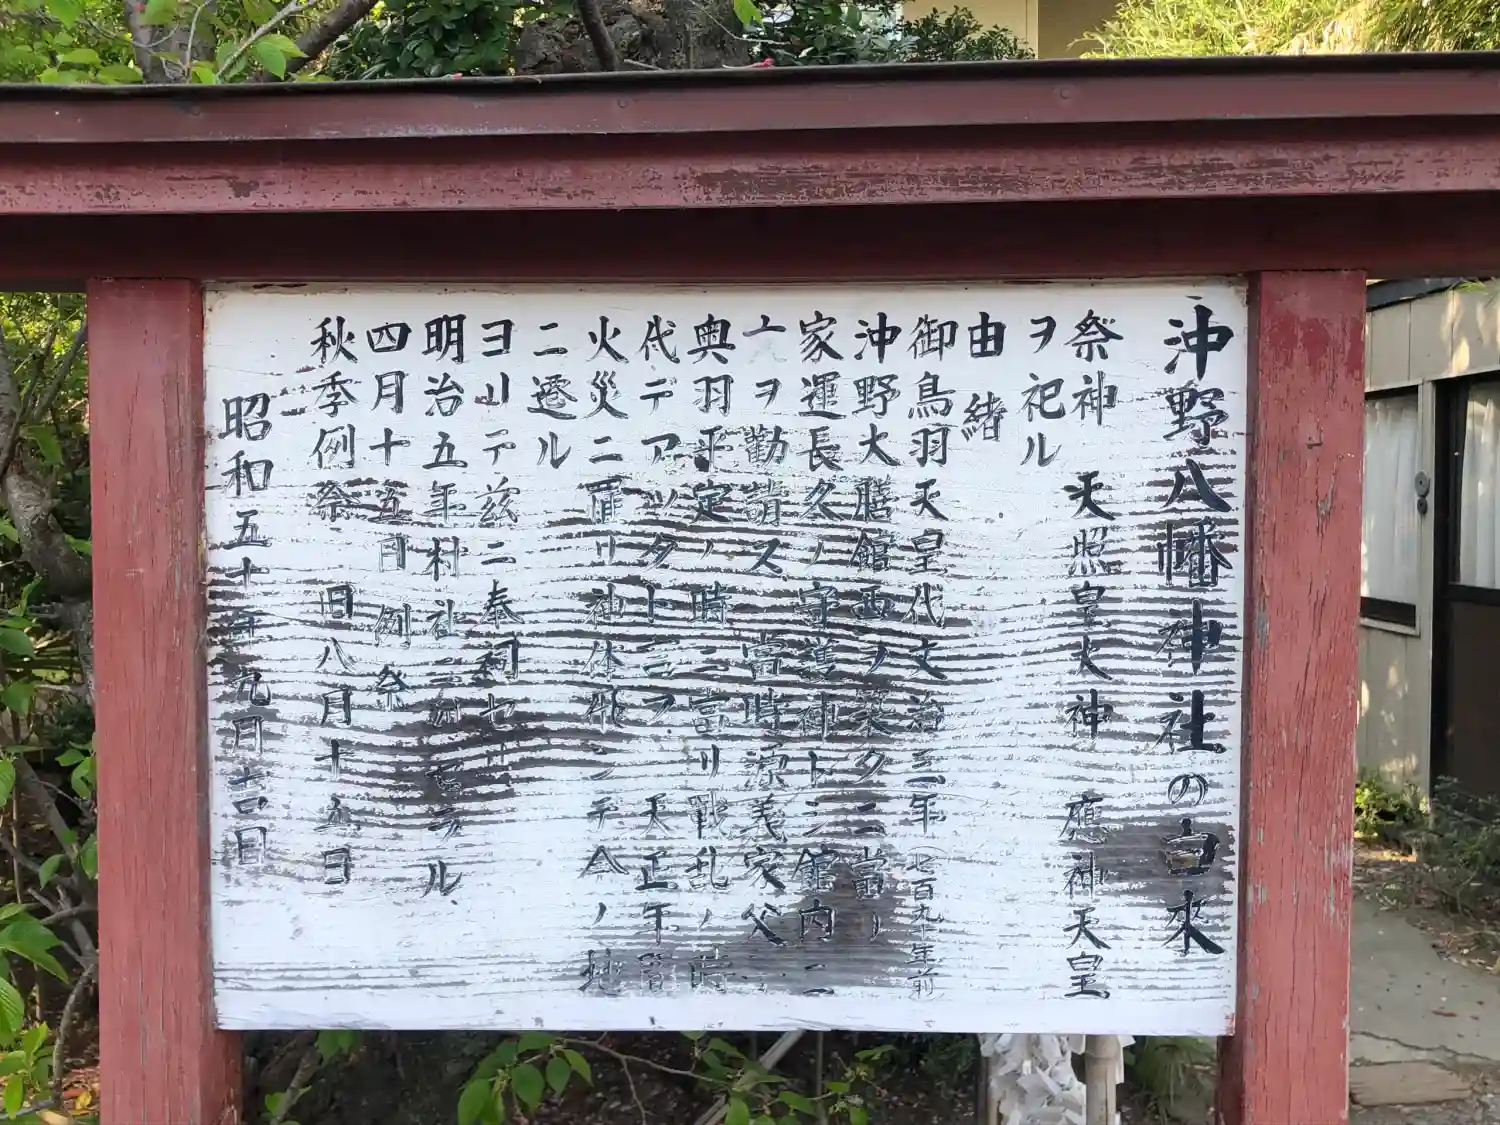 沖野八幡神社の由来
祭神 天照皇大神 應神天皇
ヲ祀ル
由緒
御鳥羽天皇代文治三年(七百九十年前)
沖野大膳館西ノ築タニ當リ
家運長久ノ守護神トシ館内ニ
ヲ勸請ス 當時源義家父
奥羽平定ノ時ニ當リ戰乱ノ時
代デアッタト云フ 天正年間
火災ニ罹リ神体飛ンデ今ノ地
ニ遷ル
ヨリテ茲ニ奉祠セリ
明治五年村社ニ列セラル
四月十五日 例祭
秋季例祭 旧八月十五日
昭和五十年九月吉日